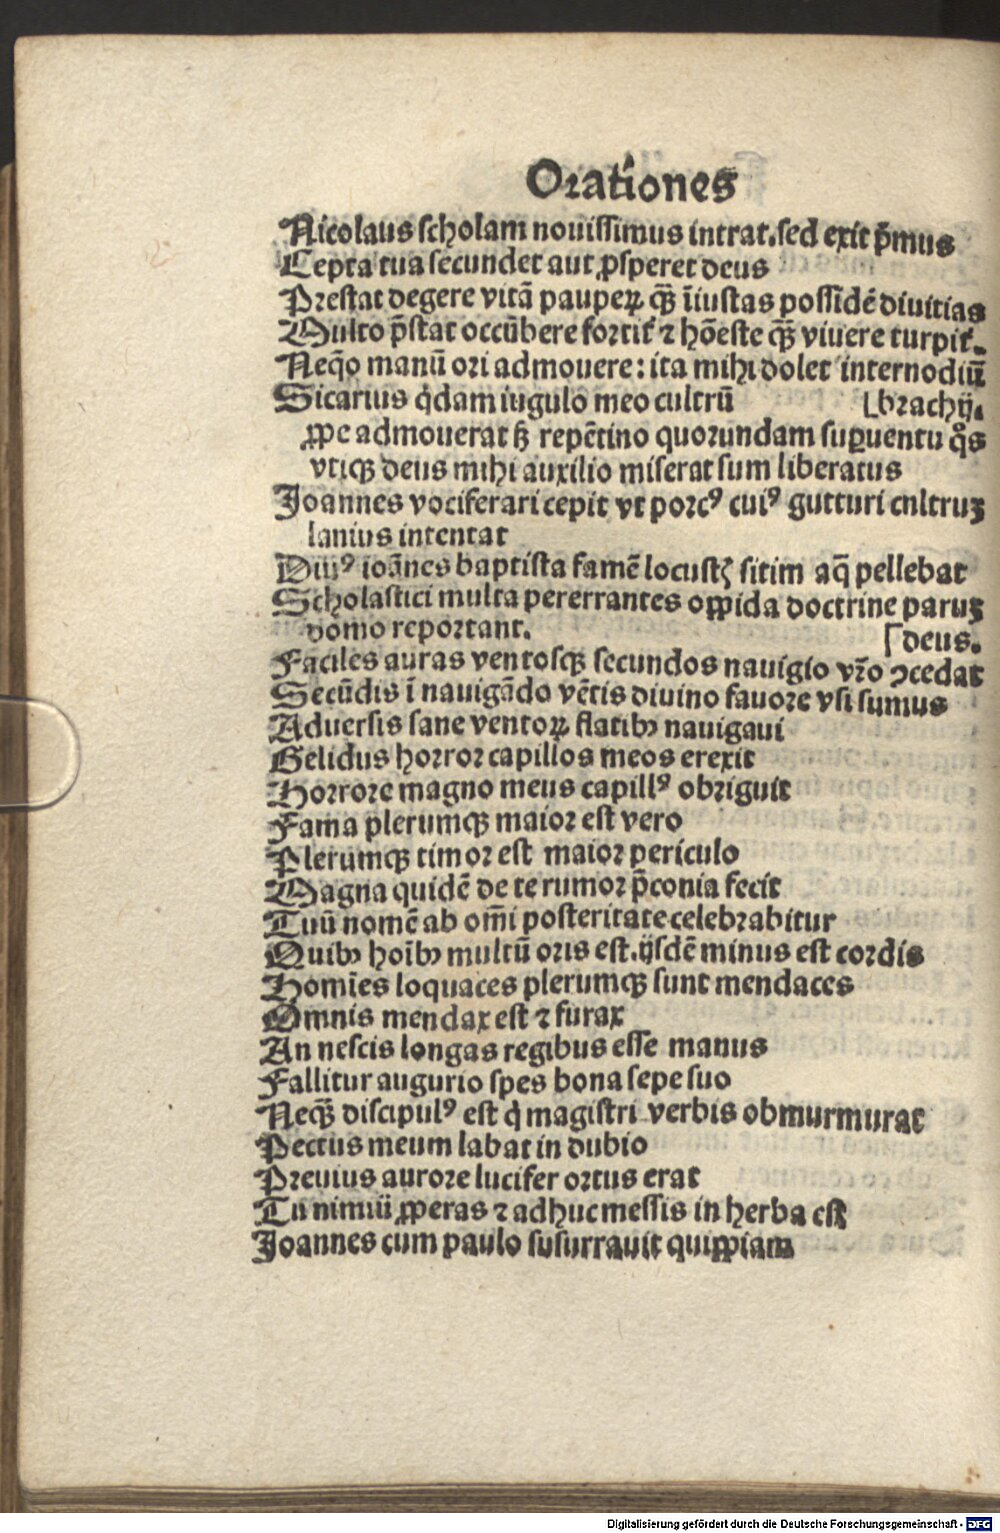 Orationes
Nicolaus scholam nouissimus intrat. sed exit p̄mus
Cepta tua secundet aut ꝓsperet deus
Prestat degere vitā pauperꝝ qꝫ̄ īiustas possidē diuitias
Multo p̄stat occūbere fortiť ⁊ hōeste qꝫ̄ viuere turpiť.
Neq̄o manū ori admouere: ita mihi dolet internodiū
Sicarius q̇dam iugulo meo cultrū [brachij.
ꝓpe admouerat sꝫ repētino quorundam suꝑuentu q̊s
vticꝫ deus mihi auxilio miserat sum liberatus
Joannes vociferari cepit vt porcꝰ cuiꝰ gutturi cultruꝫ
lanius intentat
Diuꝰ ioānes baptista famē locustꝭ sitim aq̄ pellebat
Scholastici multa pererrantes oppida doctrine paruꝫ
domo reportant. [deus.
Faciles auras ventosqꝫ secundos nauigio vr̄o ꝯcedat
Secūdis ī nauigādo vētis diuino fauore vsi sumus
Aduersis sane ventoꝝ flatibꝰ nauigaui
Gelidus horror capillos meos erexit
Horrore magno meus capillꝰ obriguit
Fama plerumqꝫ maior est vero
Plerumqꝫ timor est maior periculo
Magna quidē de te rumor p̄conia fecit
Tuū nomē ab om̄i posteritate celebrabitur
Quibꝰ hoībꝰ multū oris est. ijsdē minus est cordis
Homīes loquaces plerumqꝫ sunt mendaces
Omnis mendax est ⁊ furax
An nescis longas regibus esse manus
Fallitur augurio spes bona sepe suo
Neqꝫ̄ discipulꝰ est q̇ magistri verbis obmurmurat
Pectus meum labat in dubio
Preuius aurore lucifer ortus erat
Tu nimiū ꝓperas ⁊ adhuc messis in herba est
Joannes cum paulo susurrauit quippiam
Digitalisierung gefördert durch die Deutsche Forschungsgemeinschaft - DFG